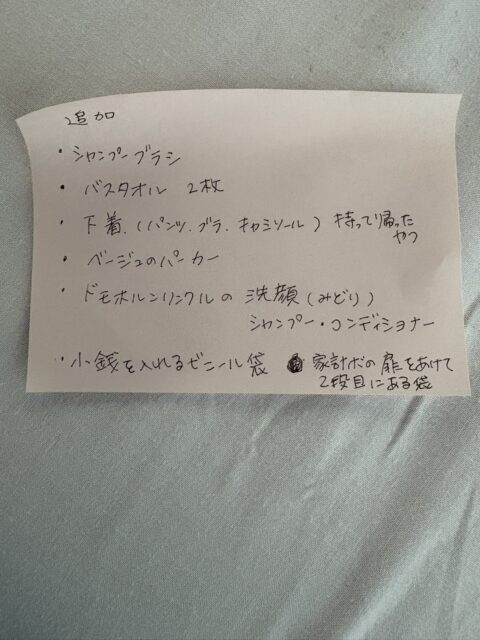 追加
・シャンプーブラシ
・バスタオル 2枚
・下着.(パンツ.ブラ.キャミソール) 持って帰った
やつ
・ベージュのパーカー
・ドモホルンリンクルの 洗顔(みどり)
シャンプー・コンディショナー
・小銭を入れるビニール袋 家計ボの扉をあけて
2段目にある袋